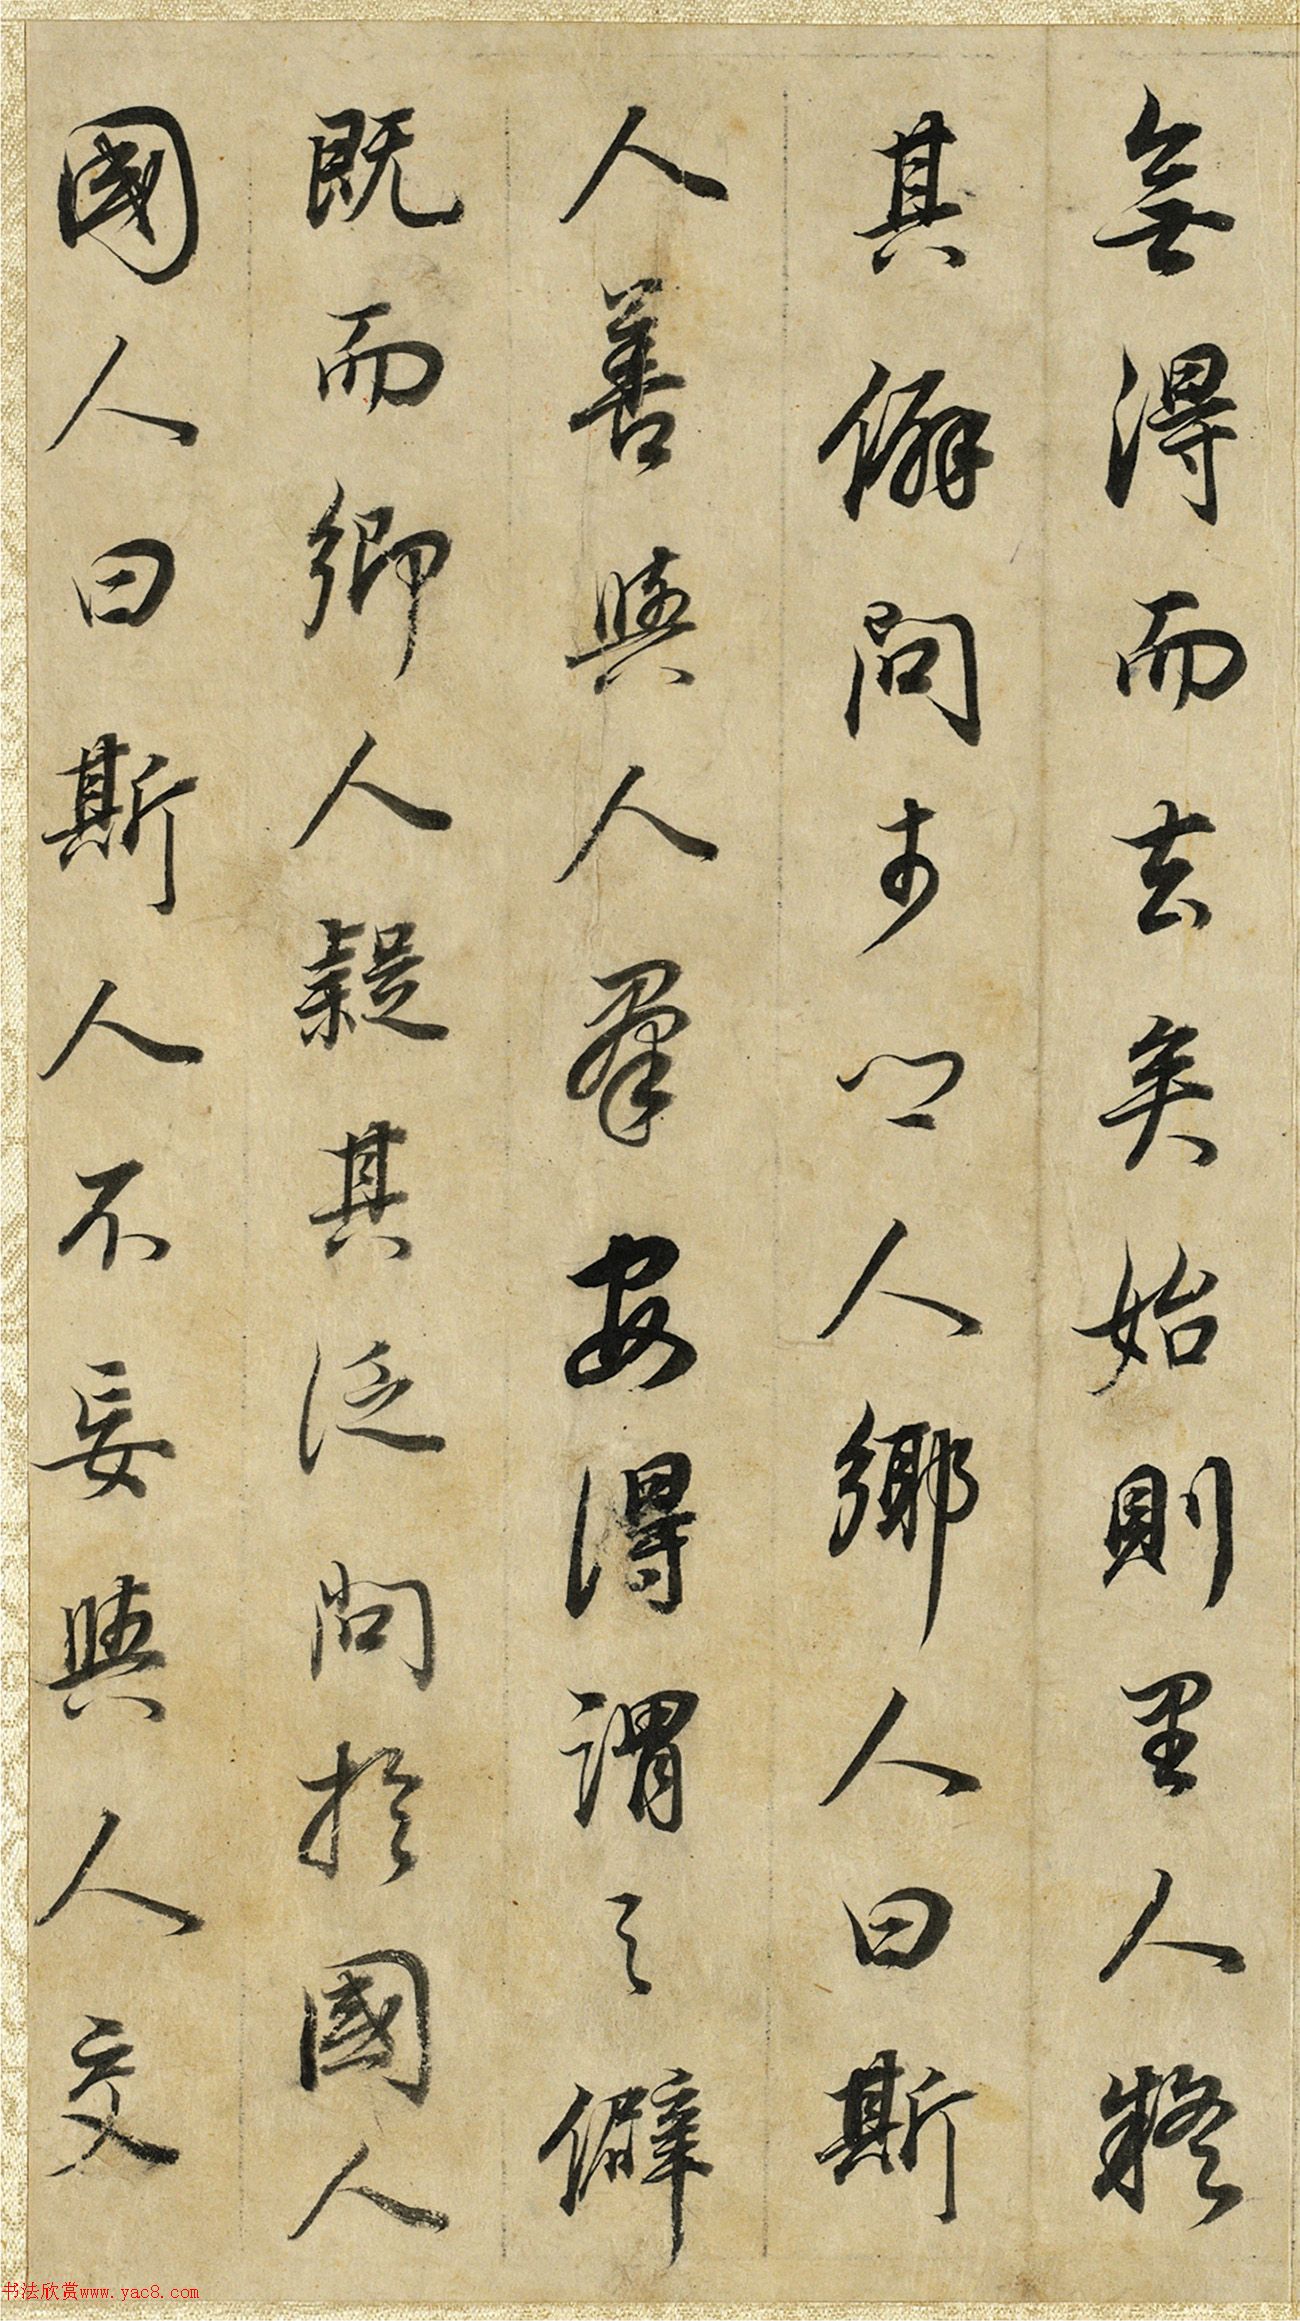 無得而去矣始則里人疑
其僻問於鄉人鄉人曰斯
人善與人群安得謂之僻
既而鄉人疑其泛問於國人
國人曰斯人不妄與人交
书法欣赏www.yac8.com